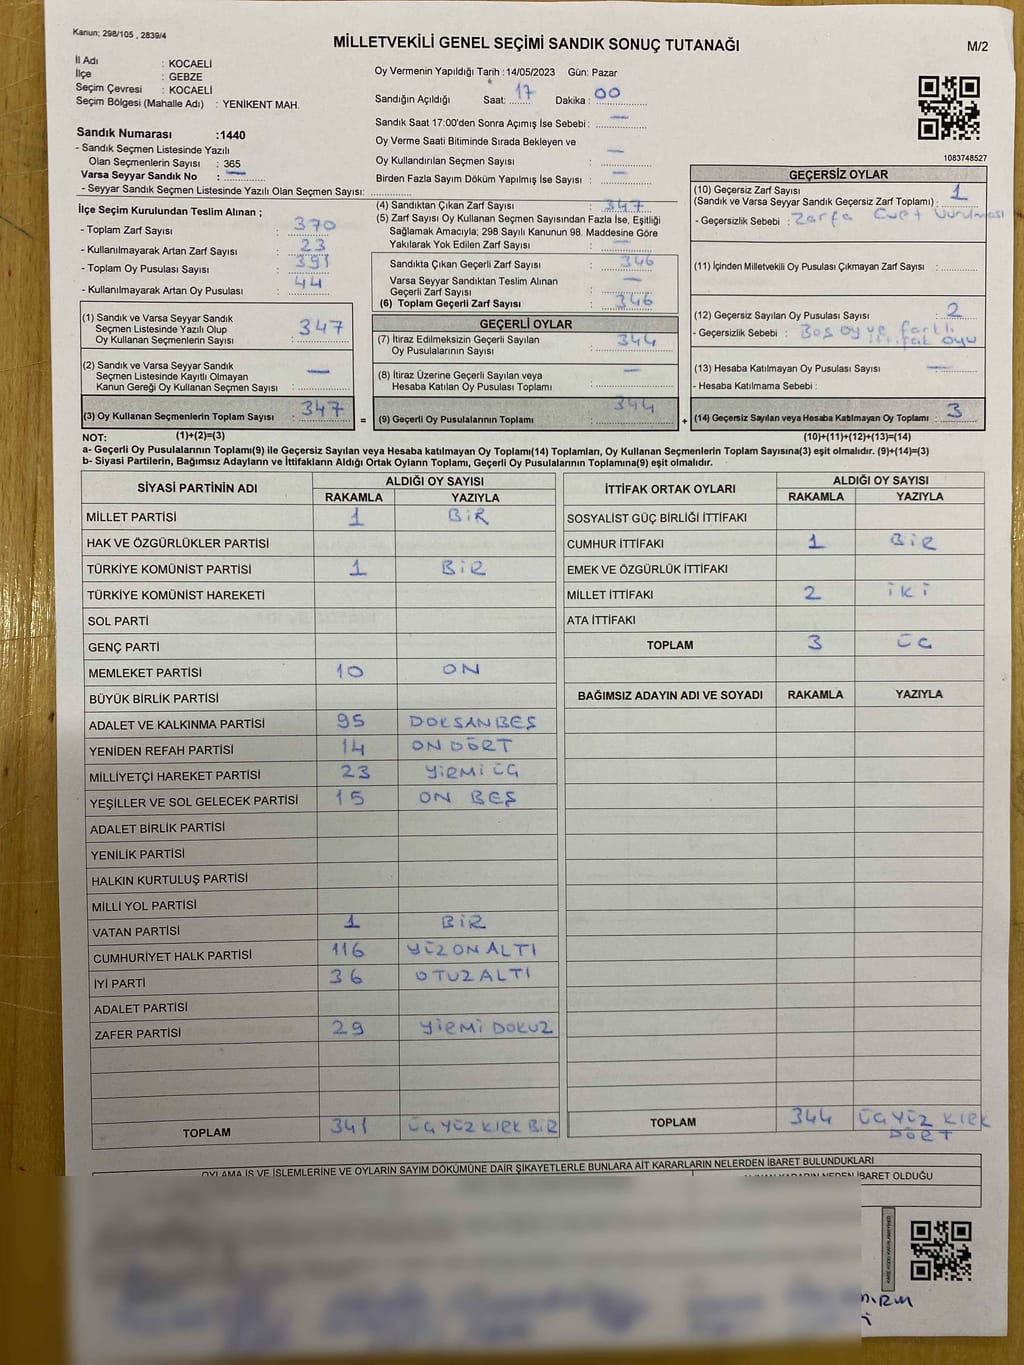 Kanun; 298/105 , 2839/4
MİLLETVEKİLİ GENEL SEÇİMİ SANDIK SONUÇ TUTANAĞI
M/2
İl Adı : KOCAELİ
İlçe : GEBZE
Seçim Çevresi : KOCAELİ
Seçim Bölgesi (Mahalle Adı) : YENİKENT MAH.
Sandık Numarası :1440
- Sandık Seçmen Listesinde Yazılı
Olan Seçmenlerin Sayısı : 365
Varsa Seyyar Sandık No : —
- Seyyar Sandık Seçmen Listesinde Yazılı Olan Seçmen Sayısı:
Oy Vermenin Yapıldığı Tarih : 14/05/2023 Gün: Pazar
Sandığın Açıldığı Saat: 17 Dakika : 00
Sandık Saat 17:00'den Sonra Açımış İse Sebebi : —
Oy Verme Saati Bitiminde Sırada Bekleyen ve
Oy Kullandırılan Seçmen Sayısı : —
Birden Fazla Sayım Döküm Yapılmış İse Sayısı : —
1083748527
İlçe Seçim Kurulundan Teslim Alınan ;
- Toplam Zarf Sayısı : 370
- Kullanılmayarak Artan Zarf Sayısı : 23
- Toplam Oy Pusulası Sayısı : 391
- Kullanılmayarak Artan Oy Pusulası : 44
(1) Sandık ve Varsa Seyyar Sandık
Seçmen Listesinde Yazılı Olup
Oy Kullanan Seçmenlerin Sayısı : 347
(2) Sandık ve Varsa Seyyar Sandık
Seçmen Listesinde Kayıtlı Olmayan
Kanun Gereği Oy Kullanan Seçmen Sayısı : —
(3) Oy Kullanan Seçmenlerin Toplam Sayısı : 347
=
(1)+(2)=(3)
(4) Sandıktan Çıkan Zarf Sayısı : 347
(5) Zarf Sayısı Oy Kullanan Seçmen Sayısından Fazla İse, Eşitliği
Sağlamak Amacıyla; 298 Sayılı Kanunun 98. Maddesine Göre
Yakılarak Yok Edilen Zarf Sayısı : —
Sandıkta Çıkan Geçerli Zarf Sayısı : 346
Varsa Seyyar Sandıktan Teslim Alınan
Geçerli Zarf Sayısı : —
(6) Toplam Geçerli Zarf Sayısı : 346
GEÇERLİ OYLAR
(7) İtiraz Edilmeksizin Geçerli Sayılan
Oy Pusulalarının Sayısı : 344
(8) İtiraz Üzerine Geçerli Sayılan veya
Hesaba Katılan Oy Pusulası Toplamı : —
(9) Geçerli Oy Pusulalarının Toplamı : 344
+
GEÇERSİZ OYLAR
(10) Geçersiz Zarf Sayısı
(Sandık ve Varsa Seyyar Sandık Geçersiz Zarf Toplamı) : 1
- Geçersizlik Sebebi : Zarfa
(11) İçinden Milletvekili Oy Pusulası Çıkmayan Zarf Sayısı :
(12) Geçersiz Sayılan Oy Pusulası Sayısı : 2
- Geçersizlik Sebebi : Boş oy ve farklı
ittifak oyu
(13) Hesaba Katılmayan Oy Pusulası Sayısı : —
- Hesaba Katılmama Sebebi :
(14) Geçersiz Sayılan veya Hesaba Katılmayan Oy Toplamı : 3
(10)+(11)+(12)+(13)=(14)
NOT:
a- Geçerli Oy Pusulalarının Toplamı(9) ile Geçersiz Sayılan veya Hesaba katılmayan Oy Toplamı(14) Toplamları, Oy Kullanan Seçmenlerin Toplam Sayısına(3) eşit olmalıdır. (9)+(14)=(3)
b- Siyasi Partilerin, Bağımsız Adayların ve İttifakların Aldığı Ortak Oyların Toplamı, Geçerli Oy Pusulalarının Toplamına(9) eşit olmalıdır.
SİYASİ PARTİNİN ADI ALDIĞI OY SAYISI
RAKAMLA YAZIYLA
MİLLET PARTİSİ 1 BİR
HAK VE ÖZGÜRLÜKLER PARTİSİ
TÜRKİYE KOMÜNİST PARTİSİ 1 BİR
TÜRKİYE KOMÜNİST HAREKETİ
SOL PARTİ
GENÇ PARTİ
MEMLEKET PARTİSİ 10 ON
BÜYÜK BİRLİK PARTİSİ
ADALET VE KALKINMA PARTİSİ 95 DOKSANBEŞ
YENİDEN REFAH PARTİSİ 14 ON DÖRT
MİLLİYETÇİ HAREKET PARTİSİ 23 YİRMİ ÜÇ
YEŞİLLER VE SOL GELECEK PARTİSİ 15 ON BEŞ
ADALET BİRLİK PARTİSİ
YENİLİK PARTİSİ
HALKIN KURTULUŞ PARTİSİ
MİLLİ YOL PARTİSİ
VATAN PARTİSİ 1 BİR
CUMHURİYET HALK PARTİSİ 116 YÜZ ON ALTI
İYİ PARTİ 36 OTUZ ALTI
ADALET PARTİSİ
ZAFER PARTİSİ 29 YİRMİ DOKUZ
TOPLAM 341 ÜÇ YÜZ KIRK BİR
İTTİFAK ORTAK OYLARI ALDIĞI OY SAYISI
RAKAMLA YAZIYLA
SOSYALİST GÜÇ BİRLİĞİ İTTİFAKI
CUMHUR İTTİFAKI 1 BİR
EMEK VE ÖZGÜRLÜK İTTİFAKI
MİLLET İTTİFAKI 2 İKİ
ATA İTTİFAKI
TOPLAM 3 ÜÇ
BAĞIMSIZ ADAYIN ADI VE SOYADI RAKAMLA YAZIYLA
TOPLAM 344 ÜÇ YÜZ KIRK
DÖRT
OYLAMA İŞ VE İŞLEMLERİNE VE OYLARIN SAYIM DÖKÜMÜNE DAİR ŞİKAYETLERLE BUNLARA AİT KARARLARIN NELERDEN İBARET BULUNDUKLARI
İBARET OLDUĞU